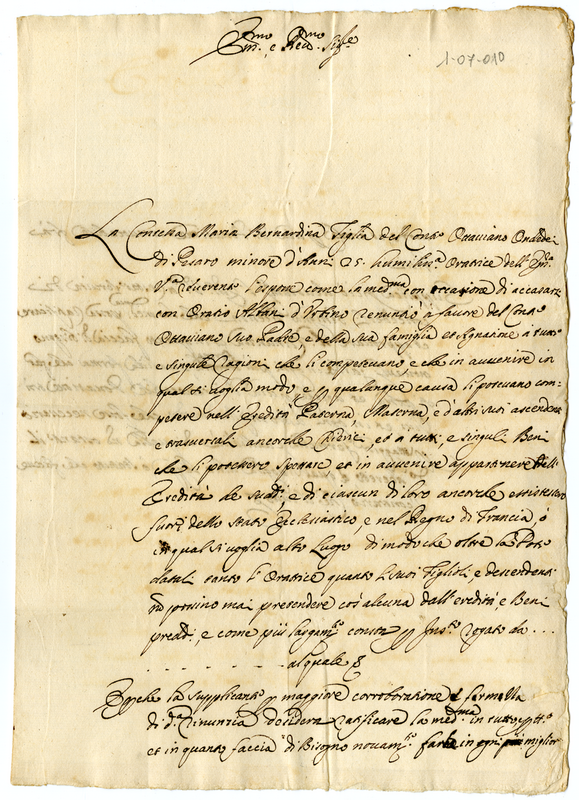 Em.mo e Rev.mo Sig.re
1-07-010
La Contessa Maria Bernardina figlia del Conte Ottaviano
di Pesaro minore d'Anni 25. humiliss.a Oratrice dell'Em.za
V.a reverente l'espone come la med.ma con occasione di accasarsi
con Oratio Albani d'Urbino renuntiò à favore del Conte
Ottaviano suo Padre e della sua famiglia et Agnatione à tutte
e singule ragioni che li competevano e che in avvenire in
qual si voglia modo, e p qualunque causa li potevano com-
petere nell'eredità Paterna, Materna, e d'altri suoi ascendenti
e trasversali ancorche et à tutti, e singuli Beni
che li potessero spettare et in avvenire appartenere
Eredità de sud.i, e di ciascun di loro ancorche esistessero
fuori dello Stato Ecclesiastico, e nel Regno di Francia, ò
in qual si voglia altro luogo di modo che oltre la Dote
datali tanto l'Oratrice quanto li suoi figlioli, e descendenti
non possino mai pretendere cos'alcuna dall'eredità e Beni
pred.i, e come più largam.te consta p Inst.o rogato da ...
. . . . . . . al quale
E perche la supplicante p maggiore corroboratione e fermezza
di d.a renuntia desidera ratificare la med.ma in tutto, e p tutto
et in quanto faccia di bisogno novam.te farla in ogni più miglior